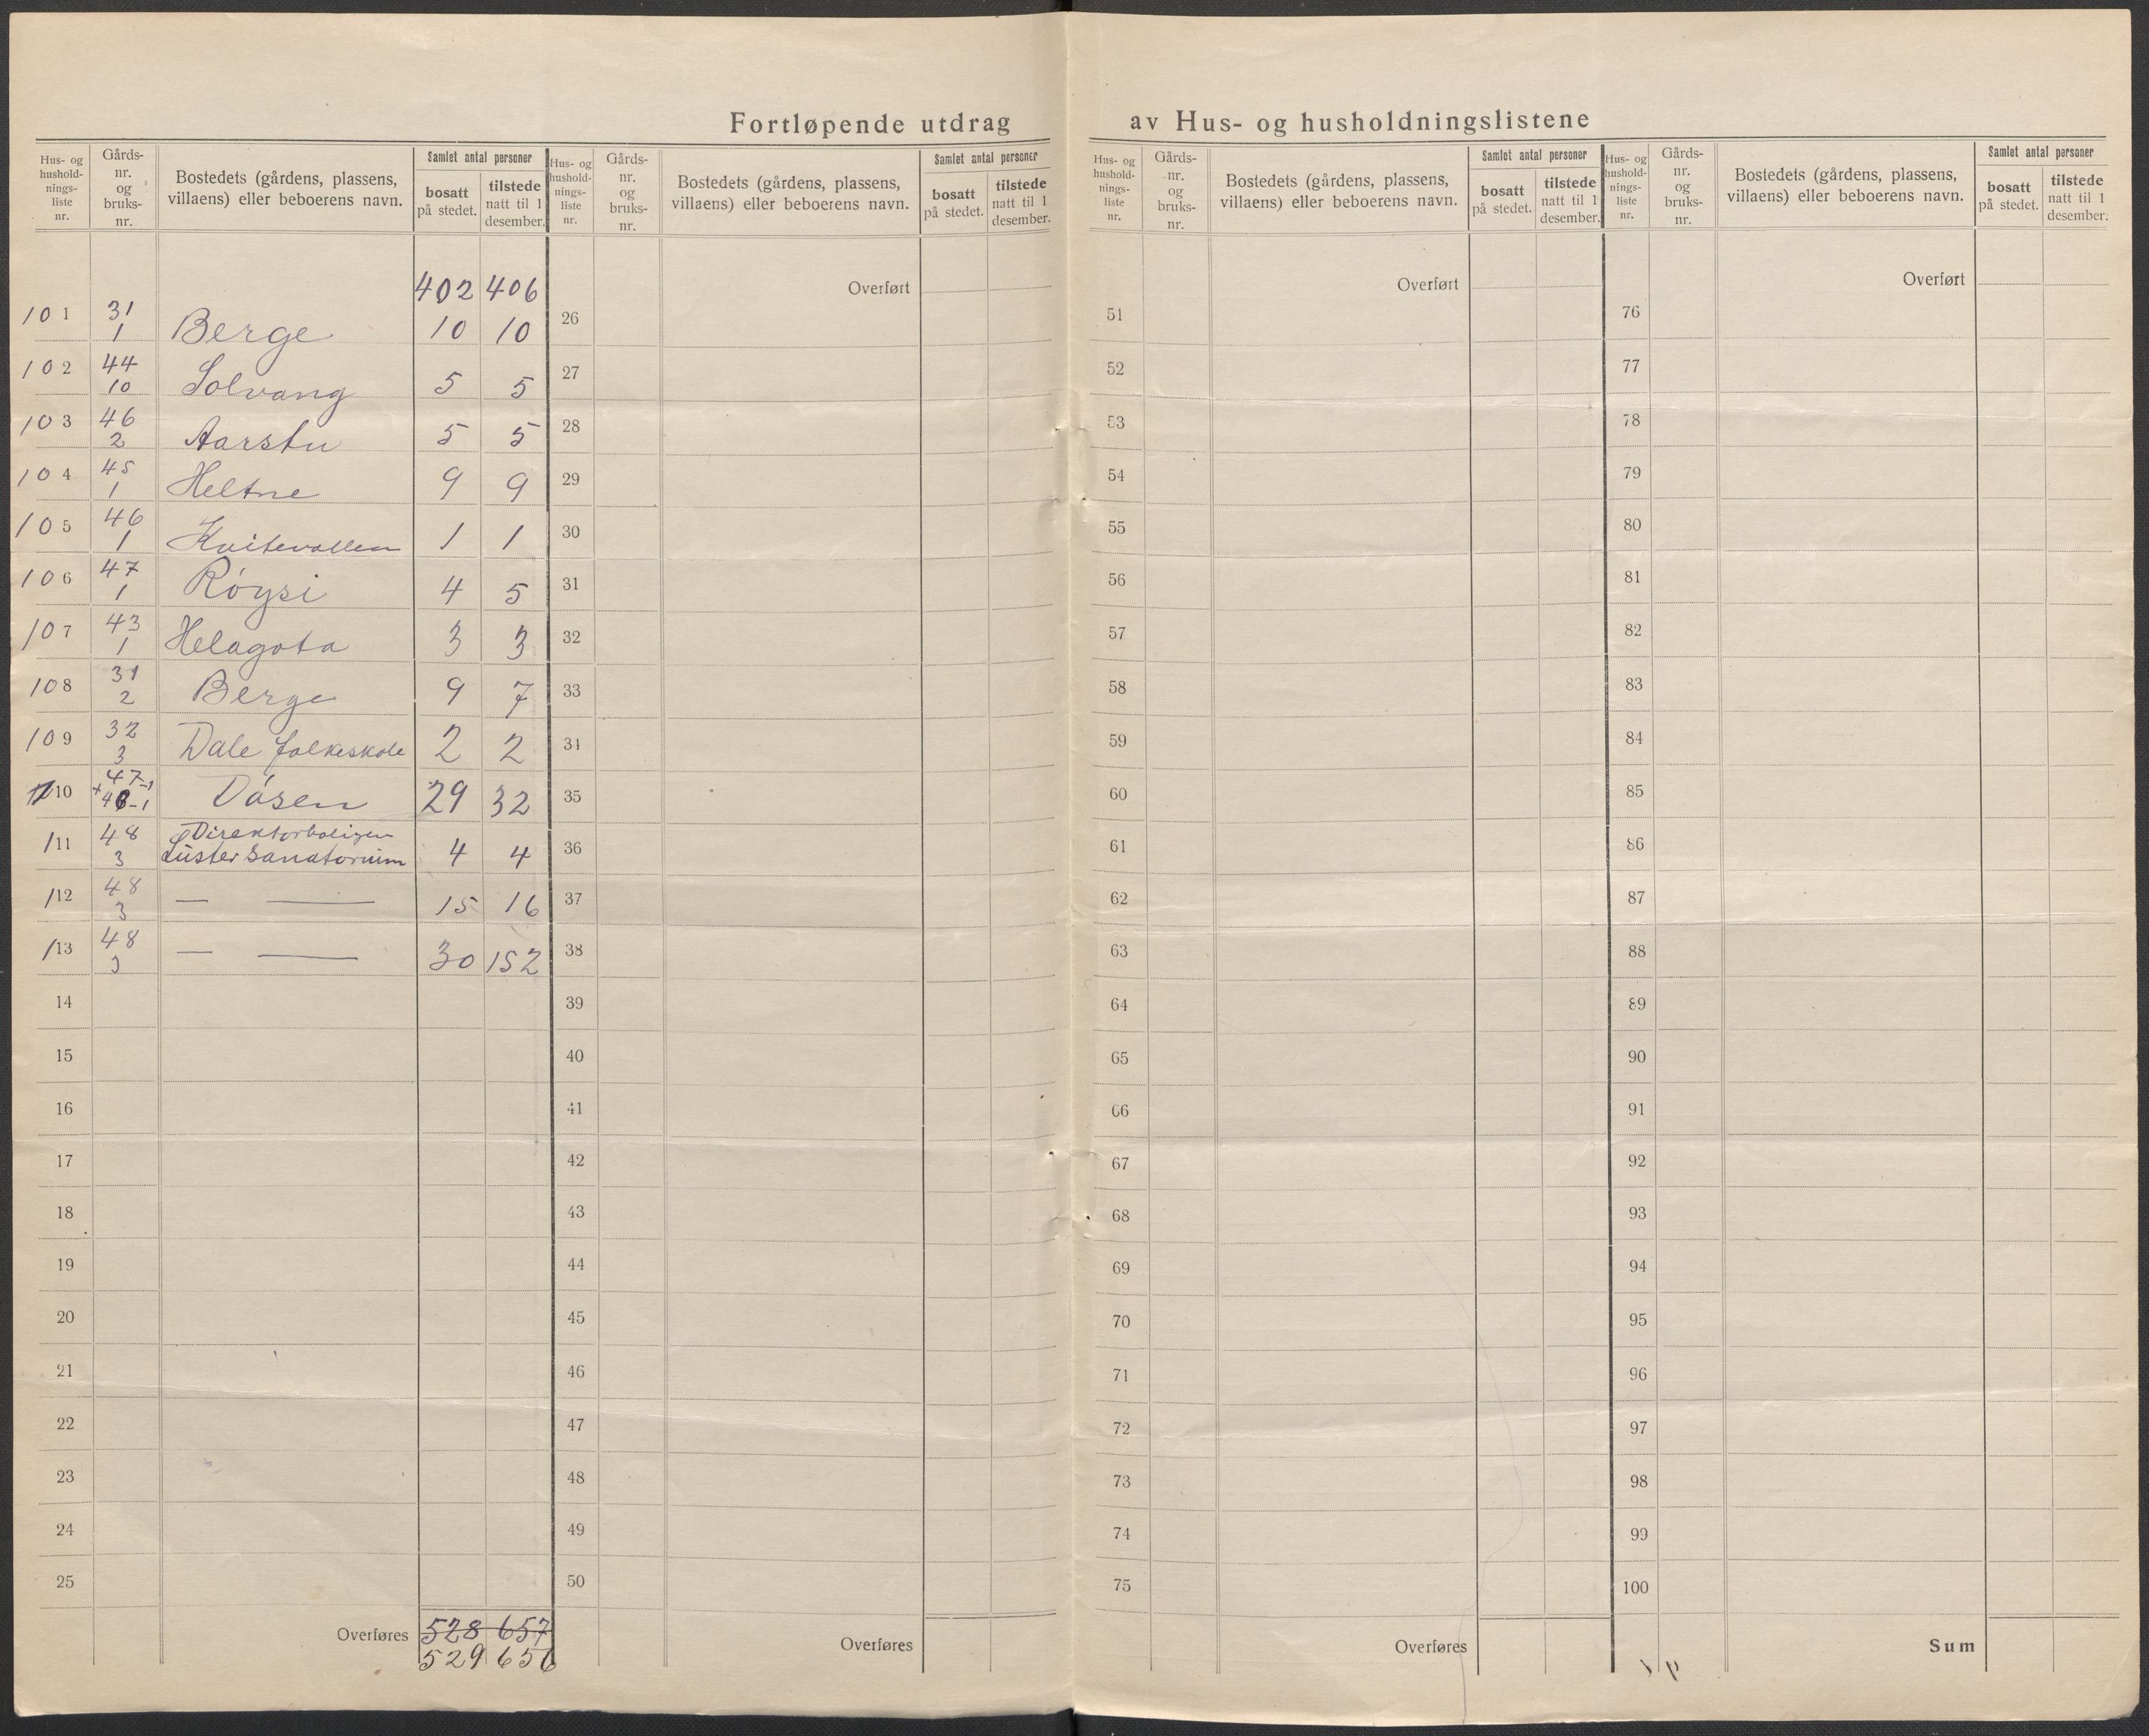 Fortløpende utdrag av Hus- og husholdningslistene
Hus- og hushold- nings- liste nr.
Gårds- nr. og bruks- nr.
Bostedets (gårdens, plassens, villaens) eller beboerens navn.
Samlet antal personer
bosatt på stedet.
tilstede natt til 1 desember.
402 406
101 31 1 Berge 10 10
102 44 10 Solvang 5 5
103 46 2 Aarstu 5 5
104 45 1 Heltne 9 9
105 46 1 Kvitevollen 1 1
106 47 1 Röysi 4 5
107 43 1 Helagota 3 3
108 31 2 Berge 9 7
109 32 3 Dale folkeskole 2 2
110 47-1 + 46-1 Dösen 29 32
111 48 3 Direktorboligen Luster Sanatorium 4 4
112 48 3 — — 15 16
113 48 3 — — 30 152
14
15
16
17
18
19
20
21
22
23
24
25
Overføres 528 657
529 656
Hus- og hushold- nings- liste nr.
Gårds- nr. og bruks- nr.
Bostedets (gårdens, plassens, villaens) eller beboerens navn.
Samlet antal personer
bosatt på stedet.
tilstede natt til 1 desember.
Overført
26
27
28
29
30
31
32
33
34
35
36
37
38
39
40
41
42
43
44
45
46
47
48
49
50
Overføres
Hus- og hushold- nings- liste nr.
Gårds- nr. og bruks- nr.
Bostedets (gårdens, plassens, villaens) eller beboerens navn.
Samlet antal personer
bosatt på stedet.
tilstede natt til 1 desember.
Overført
51
52
53
54
55
56
57
58
59
60
61
62
63
64
65
66
67
68
69
70
71
72
73
74
75
Overføres
Hus- og hushold- nings- liste nr.
Gårds- nr. og bruks- nr.
Bostedets (gårdens, plassens, villaens) eller beboerens navn.
Samlet antal personer
bosatt på stedet.
tilstede natt til 1 desember.
Overført
76
77
78
79
80
81
82
83
84
85
86
87
88
89
90
91
92
93
94
95
96
97
98
99
100
Sum